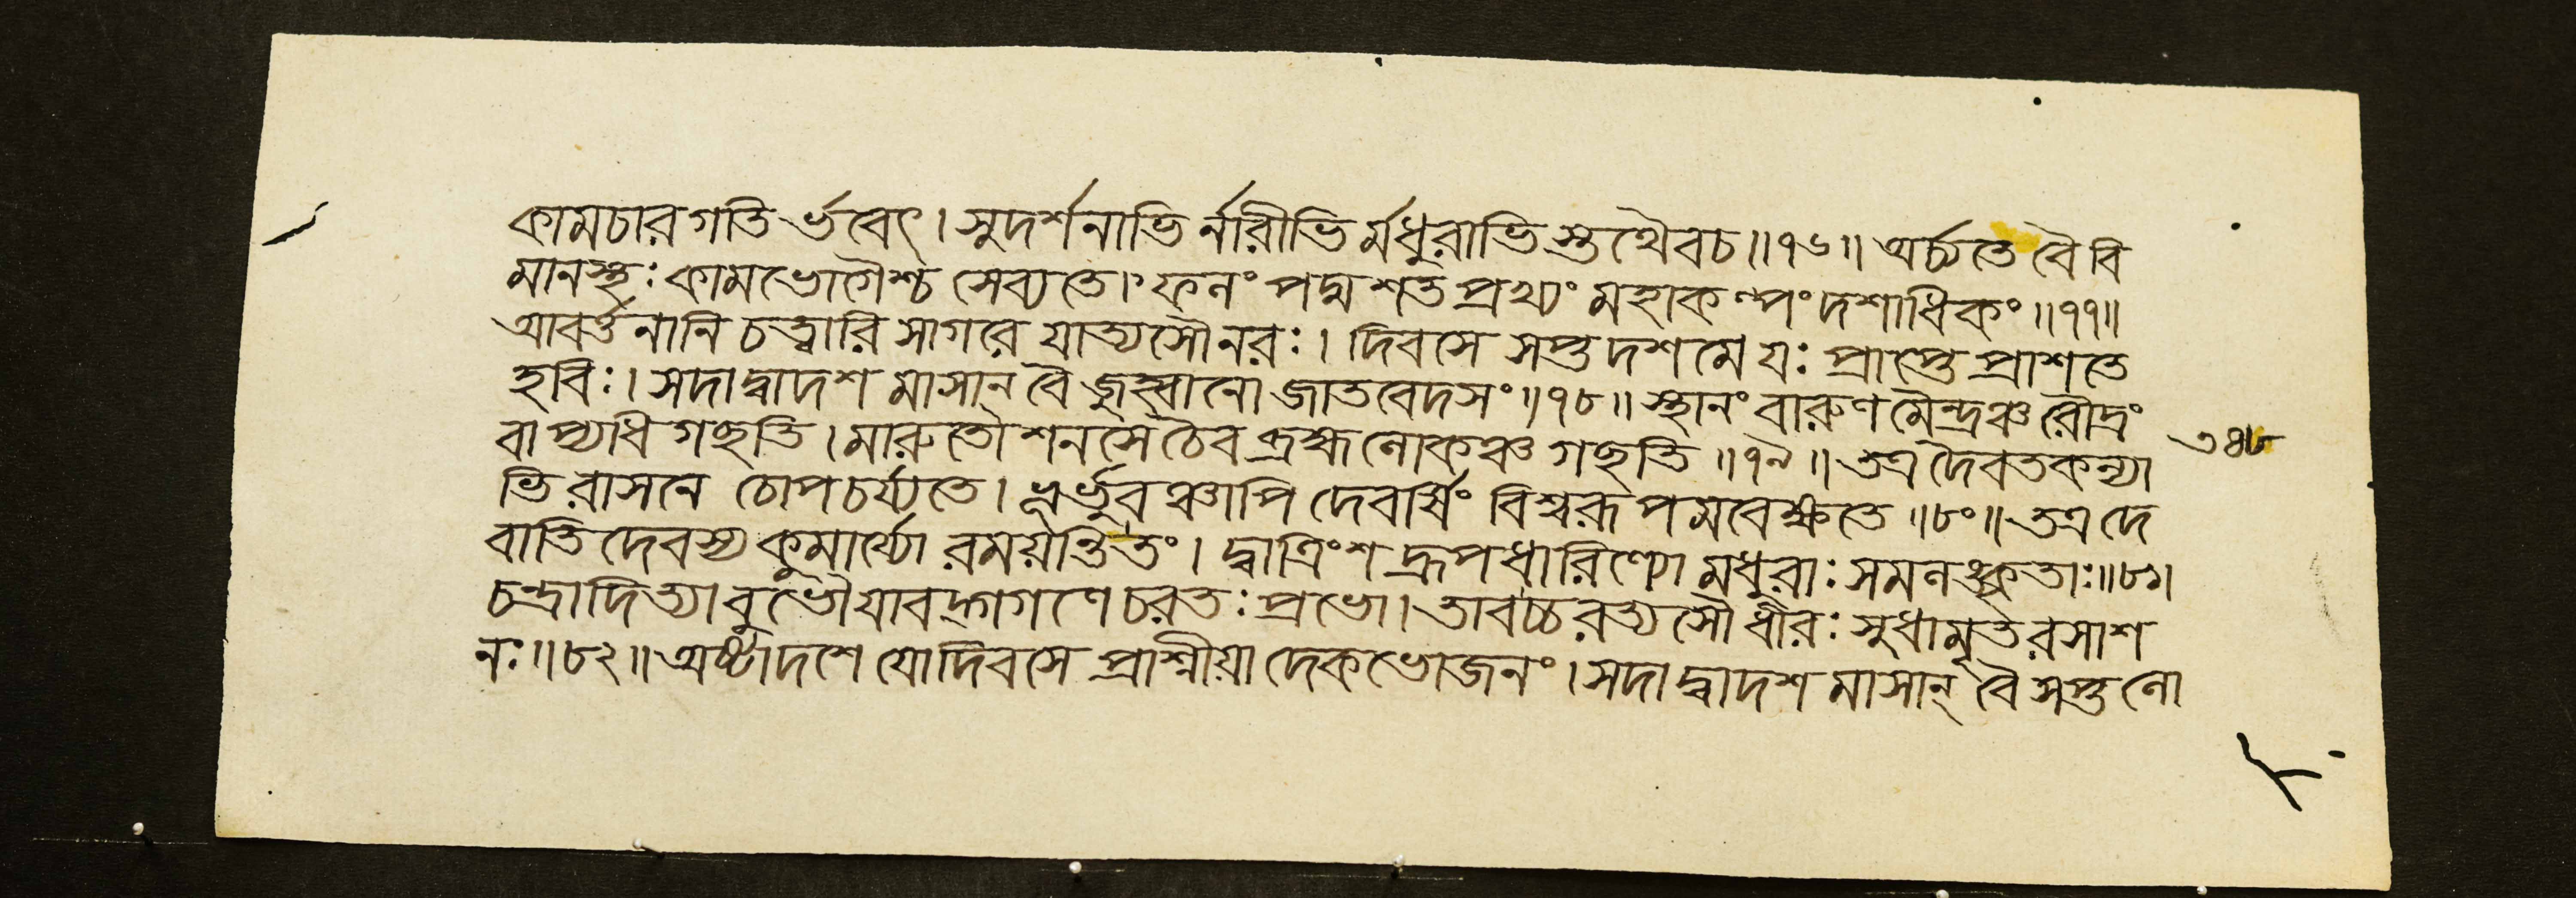 কামচারগতির্ভবেৎ। সুদর্শনাভির্নারীভির্মধুরাভিস্তথৈবচ॥৭৬॥ অর্চ্চ্যতে বৈ বি
মানস্থঃ কামভোগৈশ্চ সেব্যতে। ফলং পদ্মশতপ্রখ্যং মহাকল্পং দশাধিকং॥৭৭॥
আবর্ত্তনানি চত্বারি সাগরে যাত্যসৌ নরঃ। দিবসে সপ্তদশমে যঃ প্রাপ্তে প্রাশতে
হবিঃ। সদা দ্বাদশ মাসান্ বৈ জুহ্বানো জাতবেদসং॥৭৮॥ স্থানং বারুণমৈন্দ্রঞ্চ রৌদ্রং
বাপ্যধিগচ্ছতি। মারুতৌশনসে চৈব ব্রহ্মলোকঞ্চ গচ্ছতি॥৭৯॥ তত্র দৈবতকন্যা
ভিরাসনে চোপচর্য্যতে। ভূর্ভুবঞ্চাপি দেবর্ষিং বিশ্বরূপমবেক্ষতে॥৮০॥ তত্র দে
বাতিদেবস্য কুমার্য্যো রময়ন্তি তং। দ্বাত্রিংশদ্রূপধারিণ্যো মধুরাঃ সমলঙ্কৃতাঃ॥৮১।
চন্দ্রাদিত্যাবুভৌ যাবদ্গগণে চরতঃ প্রভো। তাবচ্চরত্যসৌ ধীরঃ সুধামৃতরসাশ
নঃ॥৮২॥ অষ্টাদশে যো দিবসে প্রাশ্নীয়াদেকভোজনং। সদা দ্বাদশ মাসান্ বৈ সপ্তলো
৩৪৮